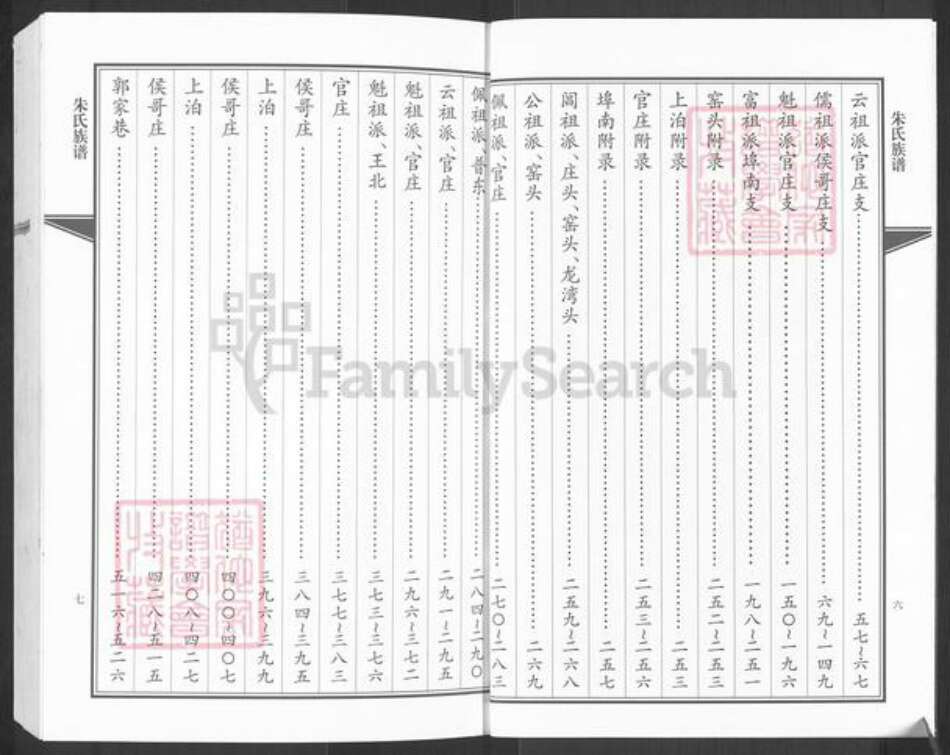 朱氏族谱
云祖派官庄支 五七～六七
儒祖派侯哥庄支 六九～一四九
魁祖派官庄支 一五〇～一九六
富祖派埠南支 一九八～二五一
窑头附录 二五二～二五三
上泊附录 二五三
官庄附录 二五三～二五六
埠南附录 二五七
阔祖派、庄头、窑头、龙湾头 二五九～二六八
公祖派、窑头 二六九
佩祖派、官庄 二七〇～二八三
六
佩祖派、普东 二八四～二九〇
云祖派、官庄 二九一～二九五
魁祖派、官庄 二九六～三七二
魁祖派、王北 三七三～三七六
官庄 三七七～三八三
侯哥庄 三八四～三九五
上泊 三九六～三九九
侯哥庄 四〇〇～四〇七
上泊 四〇八～四二七
侯哥庄 四二八～五一五
郭家巷 五一六～五二六
朱氏族谱
七
FamilySearch